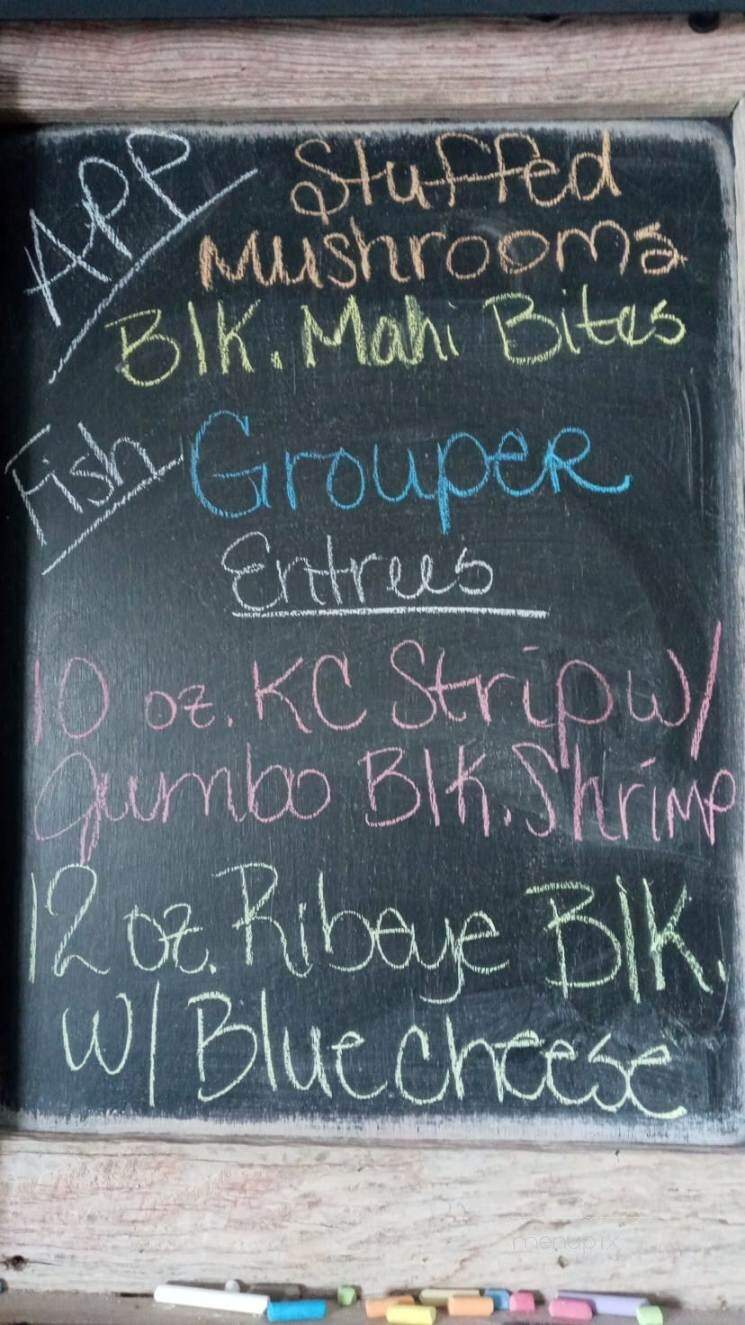 APP Stuffed
Mushrooms
Blk. Mahi Bites
Fish GroupeR
Entrees
10 oz. KC Strip w/
Jumbo Blk. Shrimp
12 oz. Ribeye Blk.
w/ Blue cheese
menupix